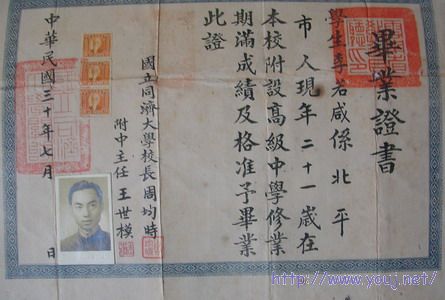 畢業證書
學生李若咸係北平
市人現年二十一歲在
本校附設高級中學修業
期滿成績及格准予畢業
此證
國立同濟大學校長周均時
附中主任王世模
中華民國三十年七月 日
http://www.youj.net/